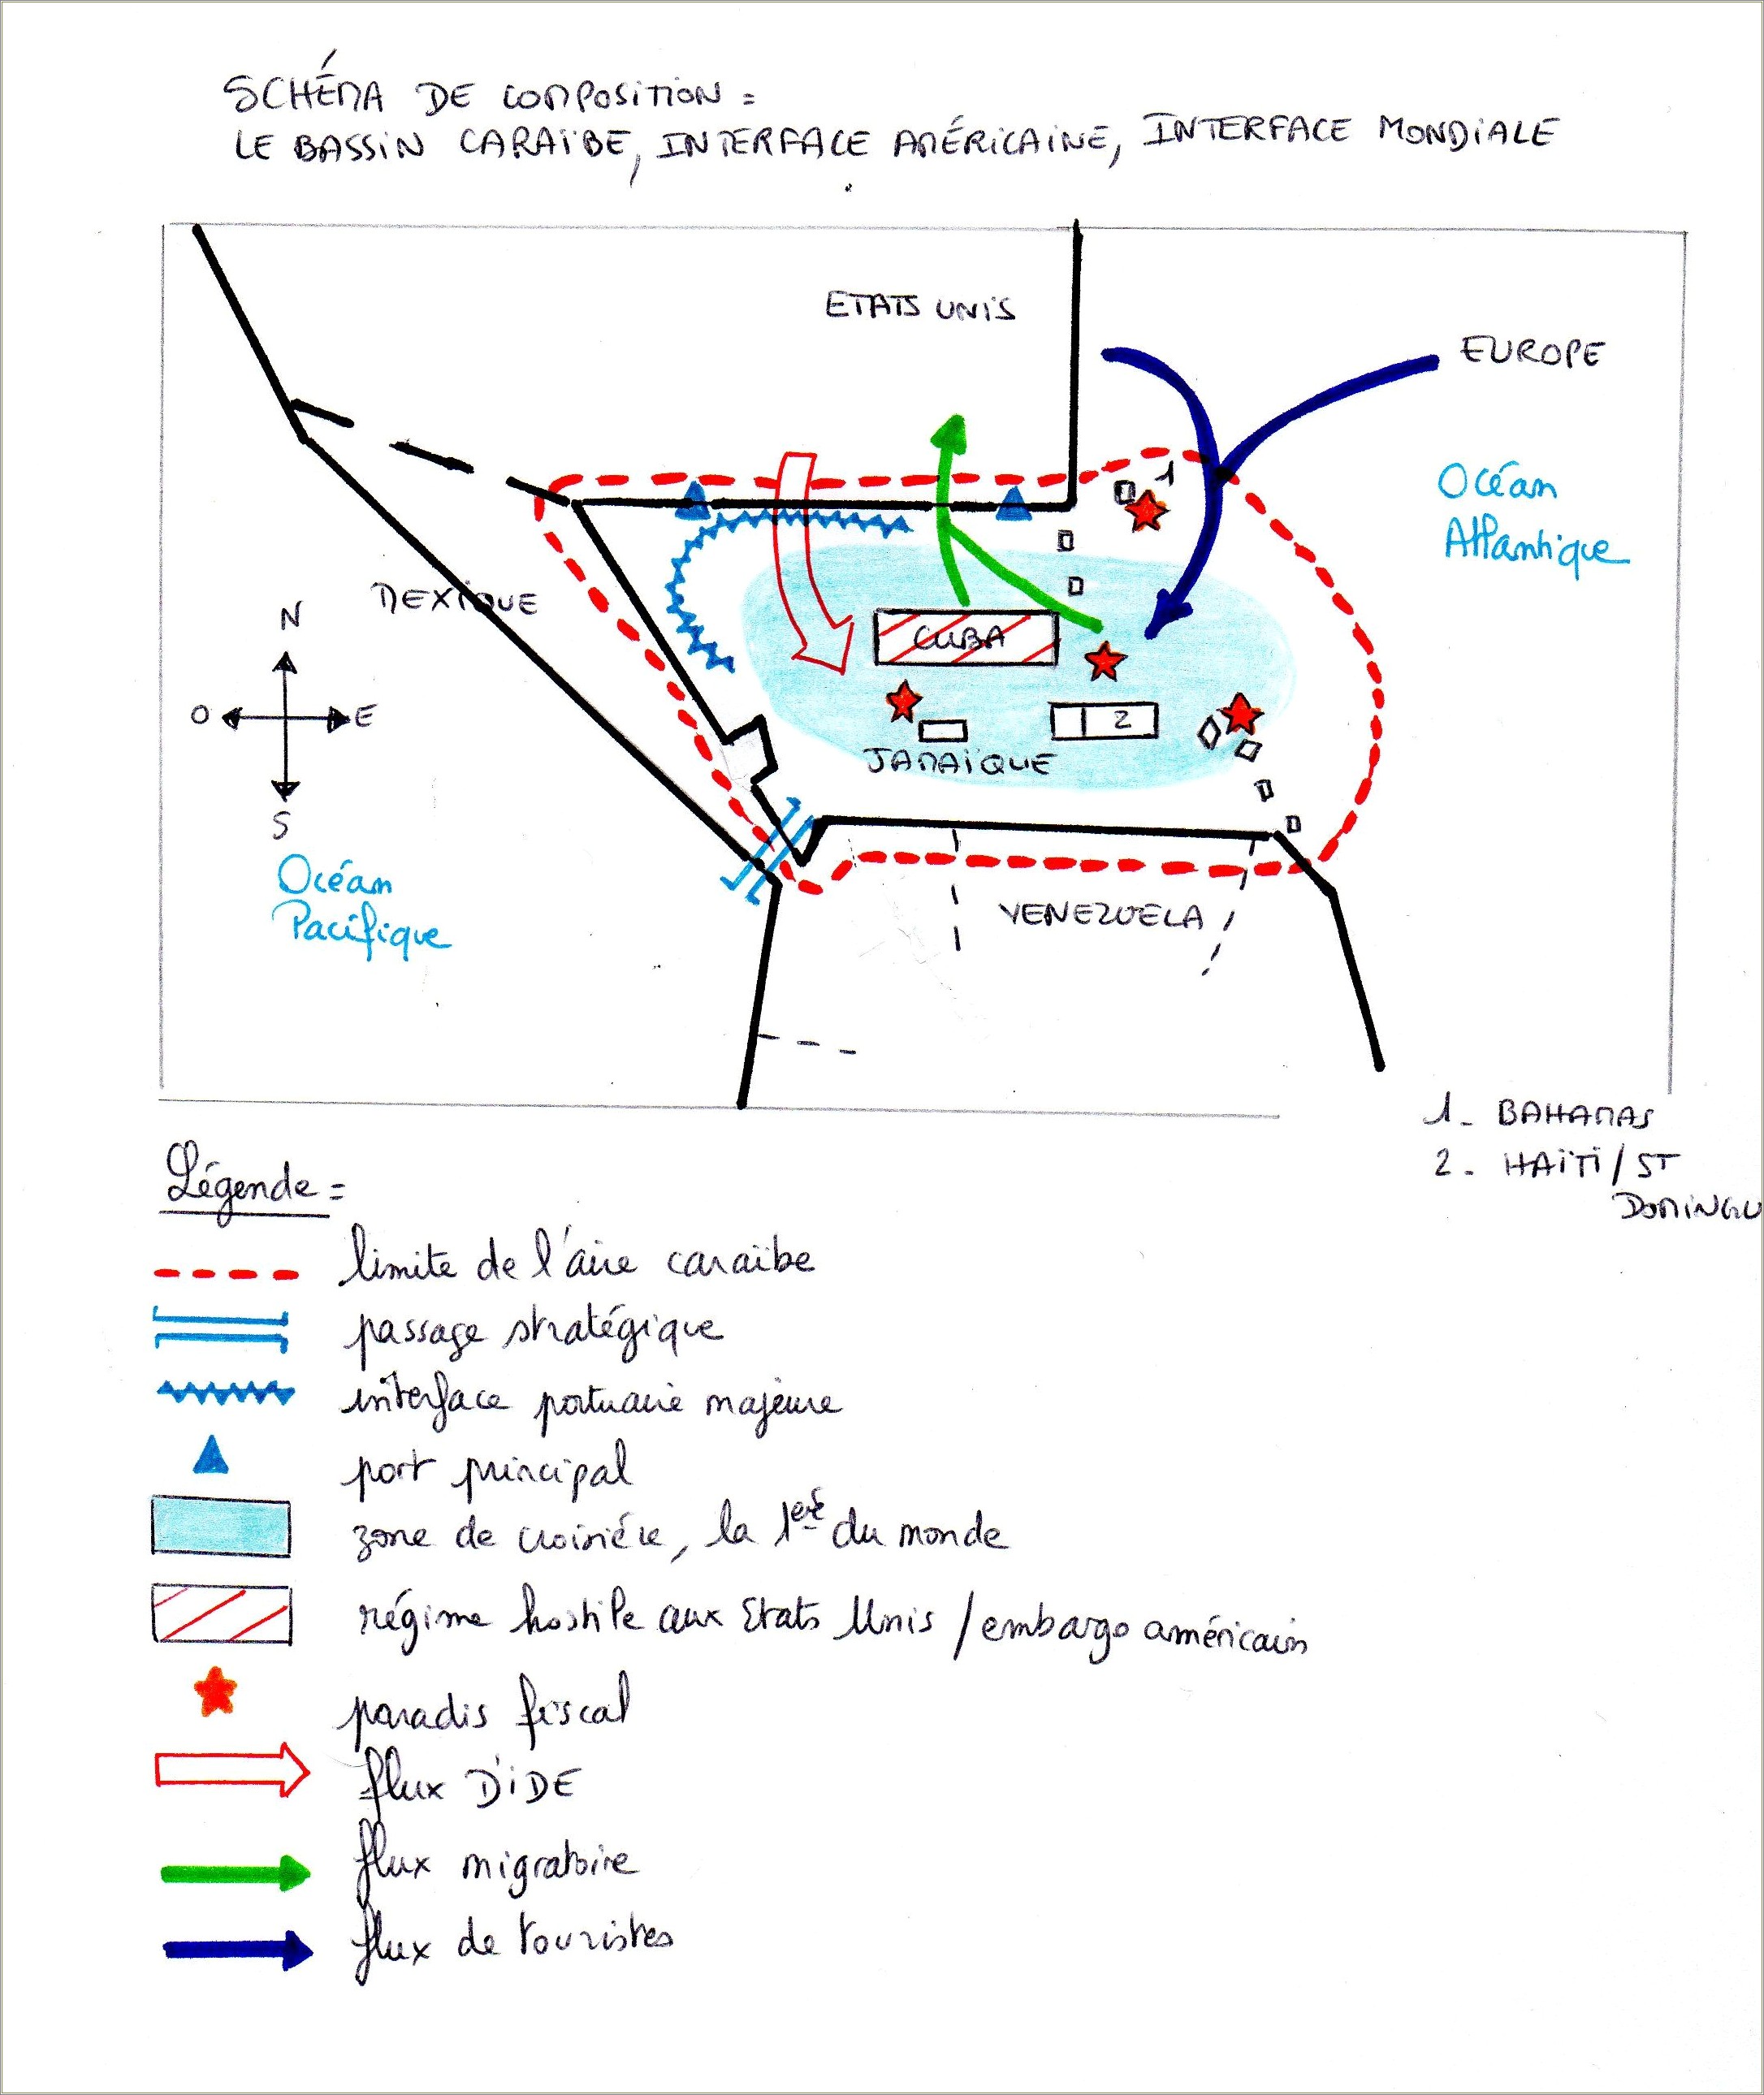 SCHÉMA DE COMPOSITION =
LE BASSIN CARAÏBE, INTERFACE AMÉRICAINE, INTERFACE MONDIALE
ETATS UNIS
EUROPE
1
Océan
Atlantique
MEXIQUE
N
CUBA
O
E
2
JAMAÏQUE
S
Océan
Pacifique
VENEZUELA
1- BAHAMAS
2- HAÏTI/ST
DOMINGU
Légende =
limite de l'aire caraïbe
passage stratégique
interface portuaire majeure
port principal
zone de croisière, la 1ère du monde
régime hostile aux Etats Unis / embargo américain
paradis fiscal
flux D'IDE
flux migratoire
flux de touristes